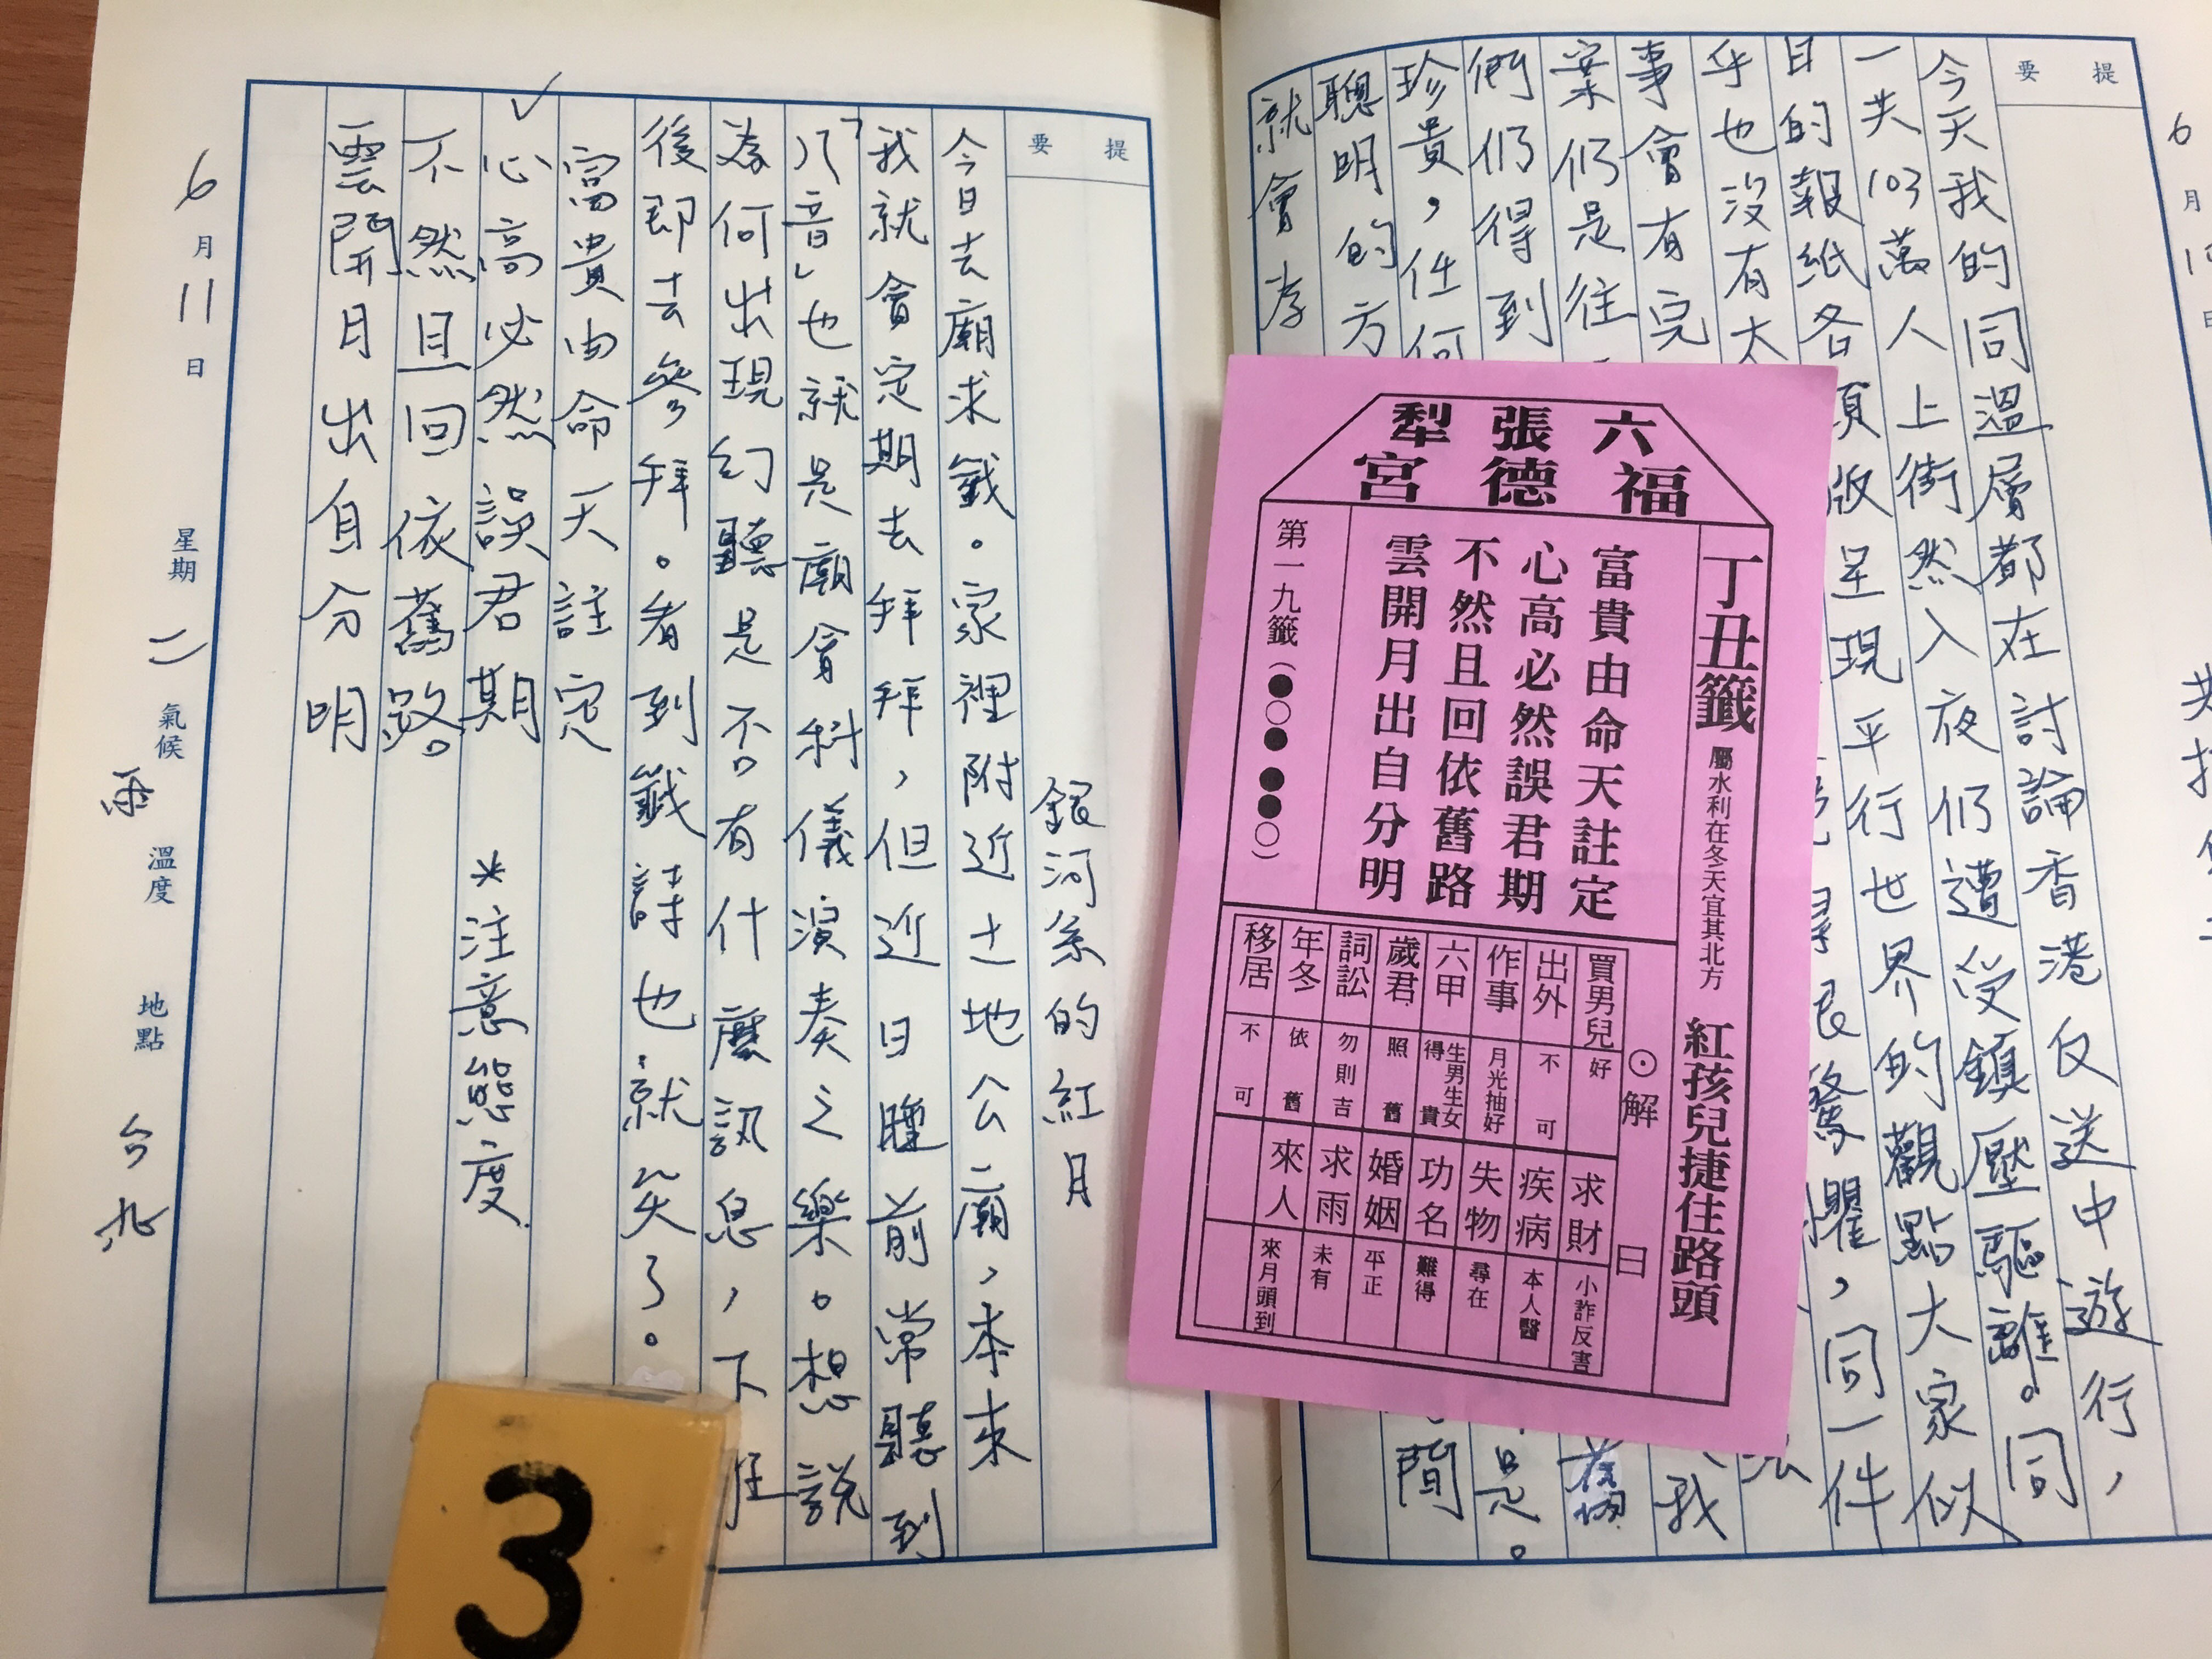 6月1日
提要
今天我的同溫層都在討論香港反送中遊行，
一共103萬人上街然入夜仍遭受鎮壓驅離。同
日的報紙各項版呈現平行世界的觀點大家似
乎也沒有太 懼，同一件
事會有完
棄仍是往 我
們仍得到 是。
珍貴，任何 間
聰明的方
就會存
六張犁
福德宮
丁丑籤 屬水利在冬天宜其北方 紅孩兒捷住路頭
富貴由命天註定
心高必然誤君期
不然且回依舊路
雲開月出自分明
第一九籤（●○●●●○）
⊙解曰
買男兒 好 求財 小詐反害
出外 不可 疾病 本人醫
作事 月光抽好 失物 尋在
六甲 生男生女得貴 功名 難得
歲君 照舊 婚姻 平正
詞訟 勿則吉 求雨 未有
年冬 依舊 來人 來月頭到
移居 不可
提要
銀河系的紅月
今日去廟求籤。家裡附近土地公廟，本來
我就會定期去拜拜，但近日睡前常聽到
「八音」也就是廟會科儀演奏之樂。想說
為何出現幻聽是否有什麼訊息，下班
後即去參拜。看到籤詩也就笑了。
富貴由命天註定
✓心高必然誤君期 *注意態度
不然且回依舊路。
雲開月出自分明
6月11日 星期二 氣候 雨 溫度 地點 台北
3